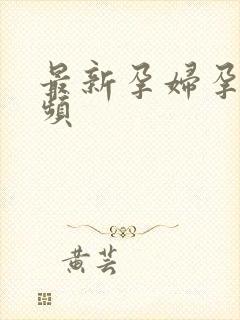 最新孕婦孕
頻
黄芸